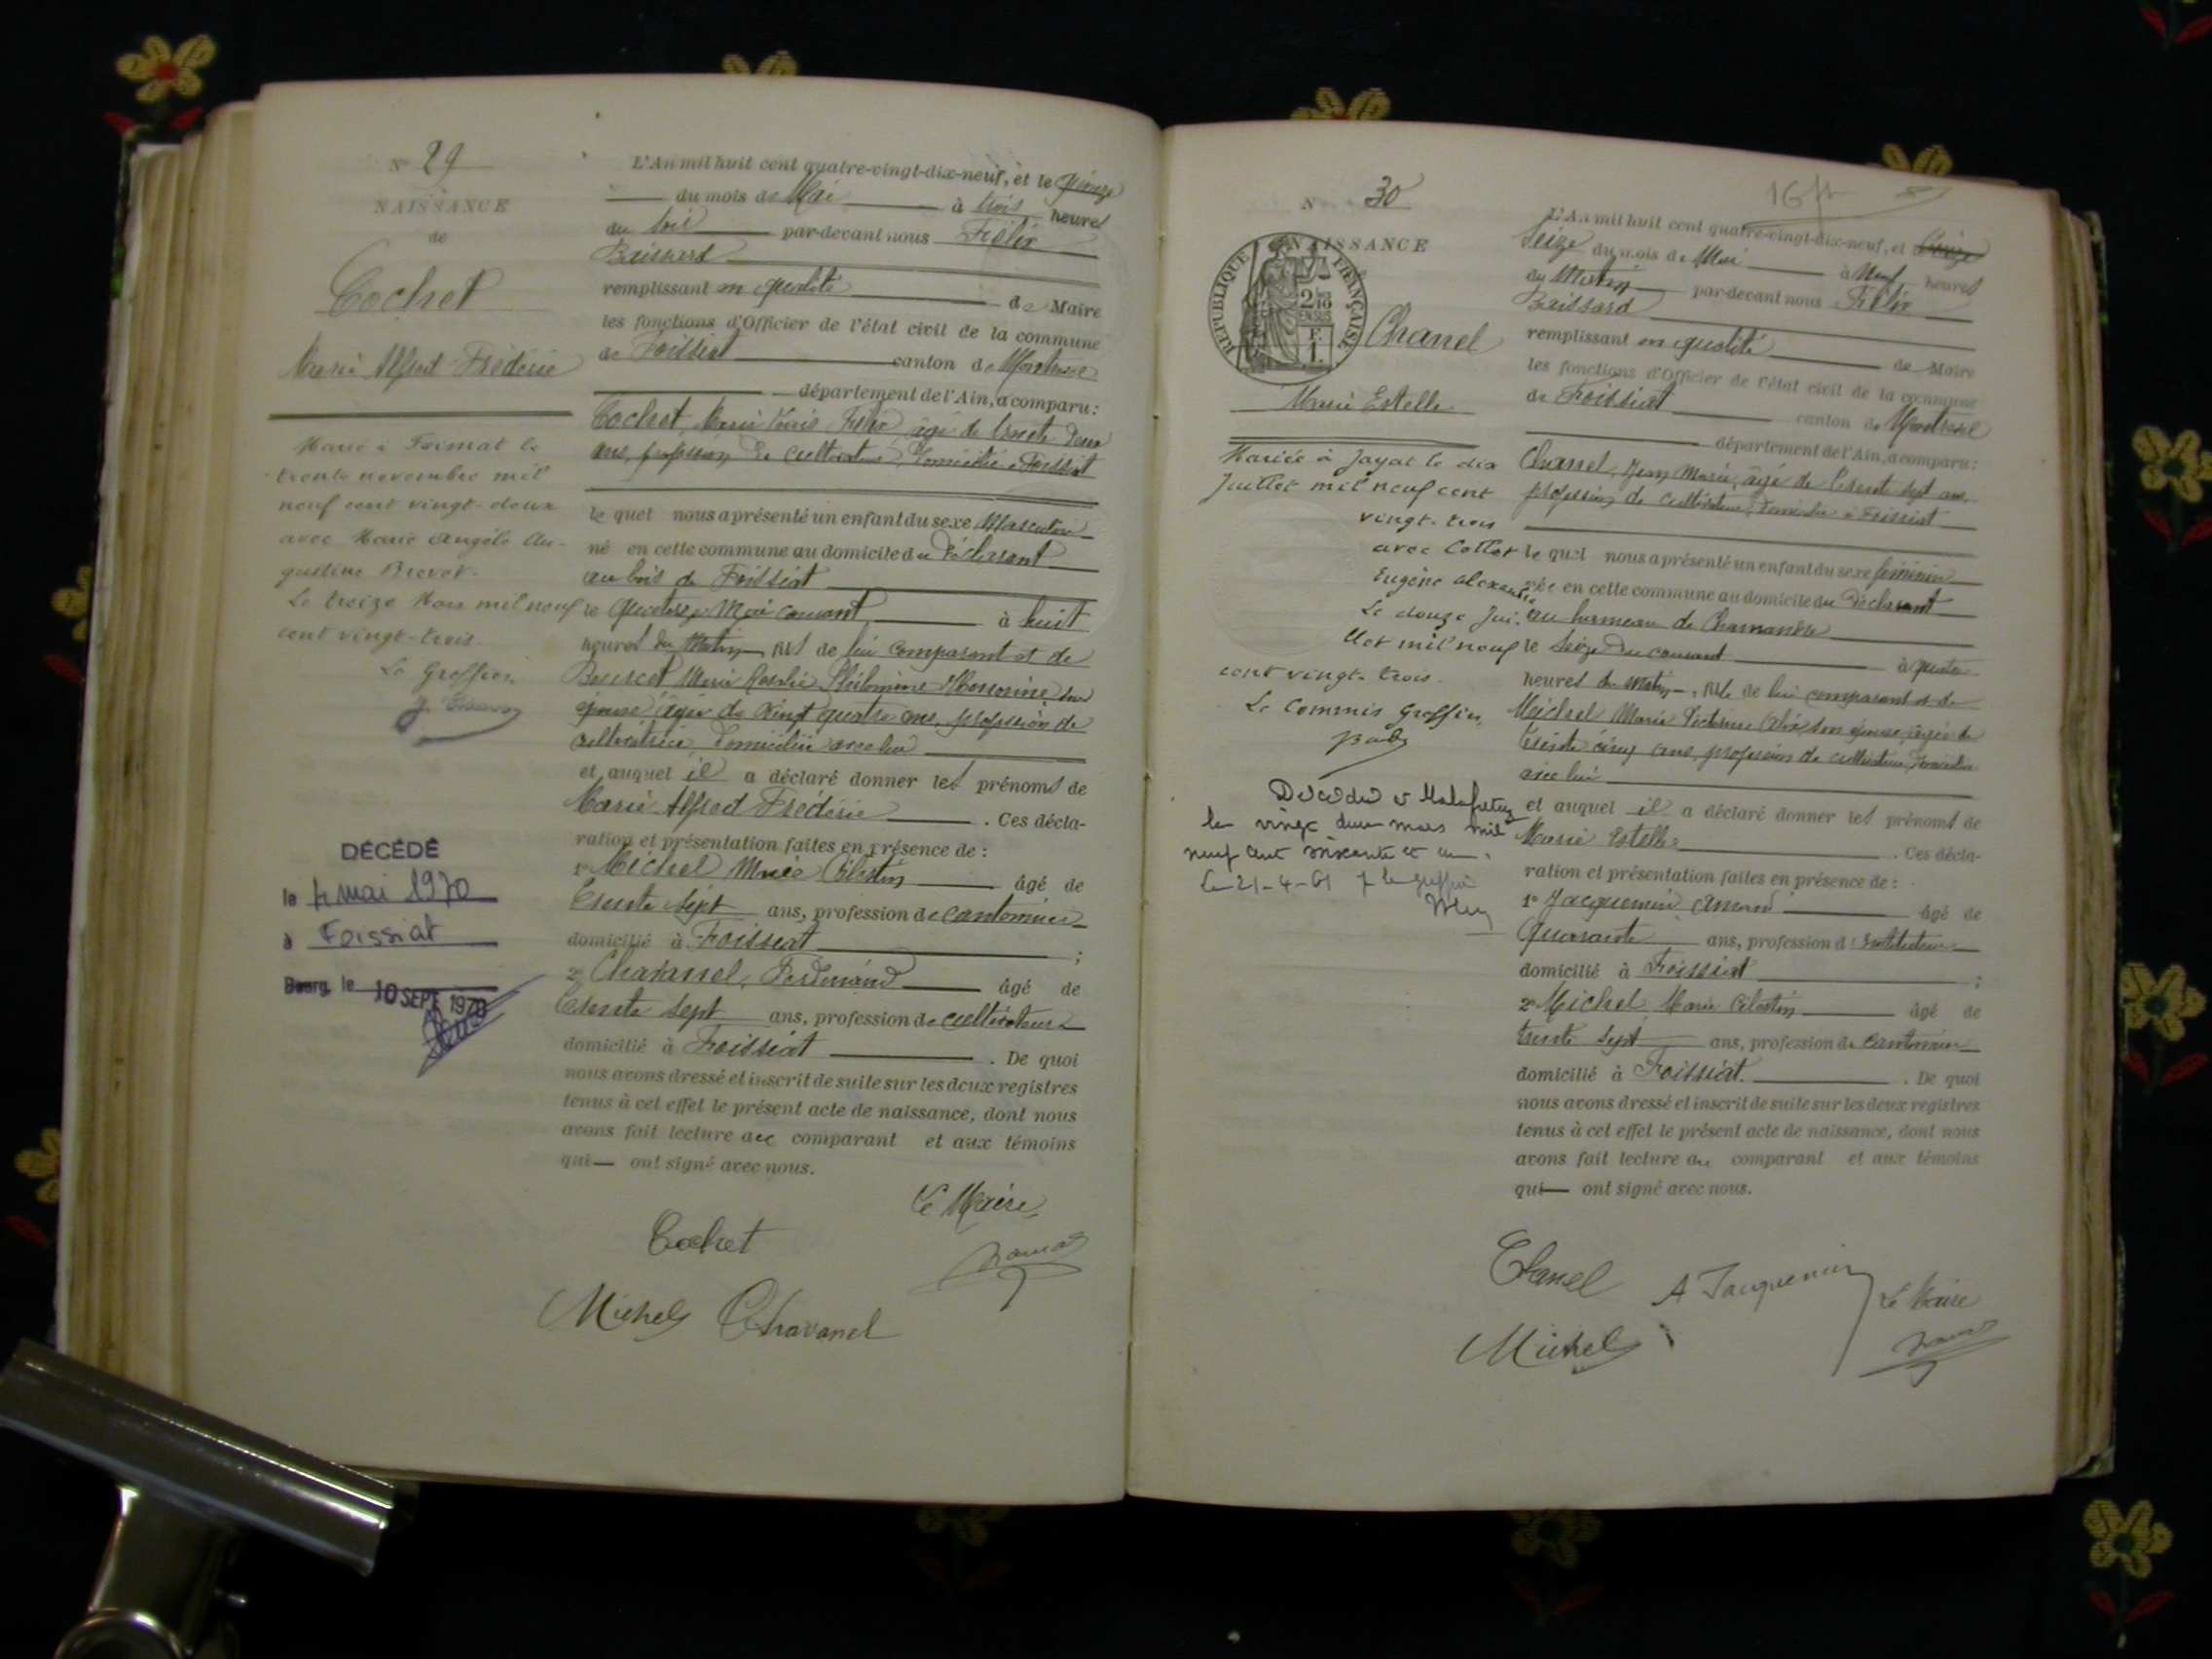 N° 29
NAISSANCE
de
Cochet
Marie Alfred Frédéric
Marié à Foissiat le
trente novembre mil
neuf cent vingt-deux
avec Marie Angèle Au-
gustine Brevet.
Le treize Mars mil neuf
cent vingt-trois.
Le Greffier
DÉCÉDÉ
le 4 mai 1970
à Foissiat
Bourg, le 10 SEPT 1970
L'An mil huit cent quatre-vingt-dix-neuf, et le quinze
du mois de Mai à trois heures
du soir par-devant nous Félix
Buissard
remplissant en qualité de Maire
les fonctions d'Officier de l'état civil de la commune
de Foissiat canton de Montrevel
département de l'Ain, a comparu:
Cochet, Marie Félix âgé de trente deux
ans, profession de cultivateur, domicilié à Foissiat
le quel nous a présenté un enfant du sexe Masculin
né en cette commune au domicile du Déclarant
au bois de Foissiat
le Quatorze Mai courant, à huit
heures du Matin fils de lui comparant et de
Marie Rosalie Philomène Honorine son
épouse âgée de vingt quatre ans, profession de
cultivatrice, domiciliée avec lui
et auquel il a déclaré donner les prénoms de
Marie Alfred Frédéric . Ces décla-
ration et présentation faites en présence de :
1° Michel Marie Célestin âgé de
trente sept ans, profession de cantonnier
domicilié à Foissiat ;
2° Chavanel, Ferdinand âgé de
trente sept ans, profession de cultivateur
domicilié à Foissiat . De quoi
nous avons dressé et inscrit de suite sur les deux registres
tenus à cet effet le présent acte de naissance, dont nous
avons fait lecture au comparant et aux témoins
qui ont signé avec nous.
Le Maire,
Cochet
Michel Chavanel
N° 30
NAISSANCE
RÉPUBLIQUE FRANÇAISE
Chanel
Marie Estelle
Mariée à Jayat le dix
Juillet mil neuf cent
vingt-trois
avec Collet
Eugène Alexandre
Le douze Jui-
llet mil neuf
cent vingt-trois.
Le Commis Greffier,
Décédée à Malafretaz
le vingt deux mars mil
neuf cent soixante et un.
Le 21-4-61 p le greffier
16
L'An mil huit cent quatre-vingt-dix-neuf, et
Seize du mois de Mai à Neuf heures
du Matin par-devant nous Félix
Buissard
remplissant en qualité de Maire
les fonctions d'Officier de l'état civil de la commune
de Foissiat canton de Montrevel
département de l'Ain, a comparu:
Chanel, Jean Marie, âgé de trente sept ans,
profession de cultivateur, domicilié à Foissiat
le quel nous a présenté un enfant du sexe féminin
née en cette commune au domicile du Déclarant
au hameau de
le Seize du courant à quatre
heures du matin, fille de lui comparant et de
Michel Marie son épouse, âgée de
trente cinq ans, profession de cultivatrice, domiciliée
avec lui
et auquel il a déclaré donner les prénoms de
Marie Estelle . Ces décla-
ration et présentation faites en présence de :
1° Jacquemin Amand âgé de
Quarante ans, profession d'Instituteur
domicilié à Foissiat ;
2° Michel Marie Célestin âgé de
trente sept ans, profession de Cantonnier
domicilié à Foissiat. . De quoi
nous avons dressé et inscrit de suite sur les deux registres
tenus à cet effet le présent acte de naissance, dont nous
avons fait lecture au comparant et aux témoins
qui ont signé avec nous.
Chanel A Jacquemin Le Maire
Michel